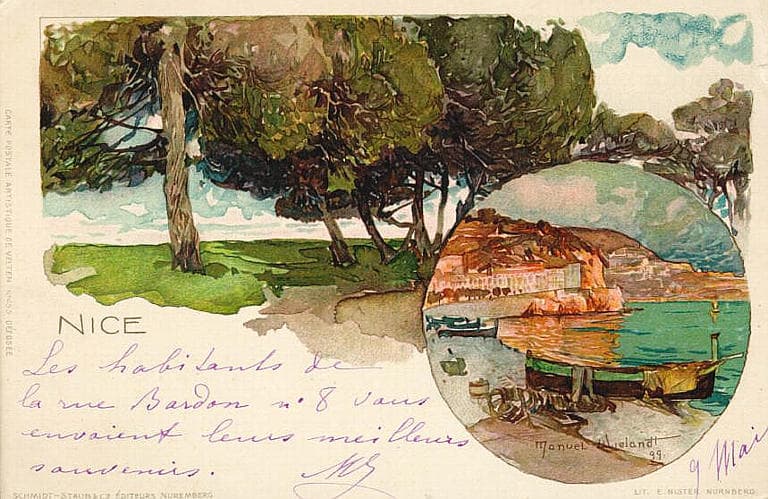 CARTE POSTALE ARTISTIQUE DE VELTEN
NICE
Les habitants de
la rue Bardon n° 8 vous
envoient leurs meilleurs
souvenirs.
Manuel Wielandt
99.
9 Mai
SCHMIDT-STAUB & Cº ÉDITEURS NUREMBERG
LIT. E. NISTER NURNBERG.